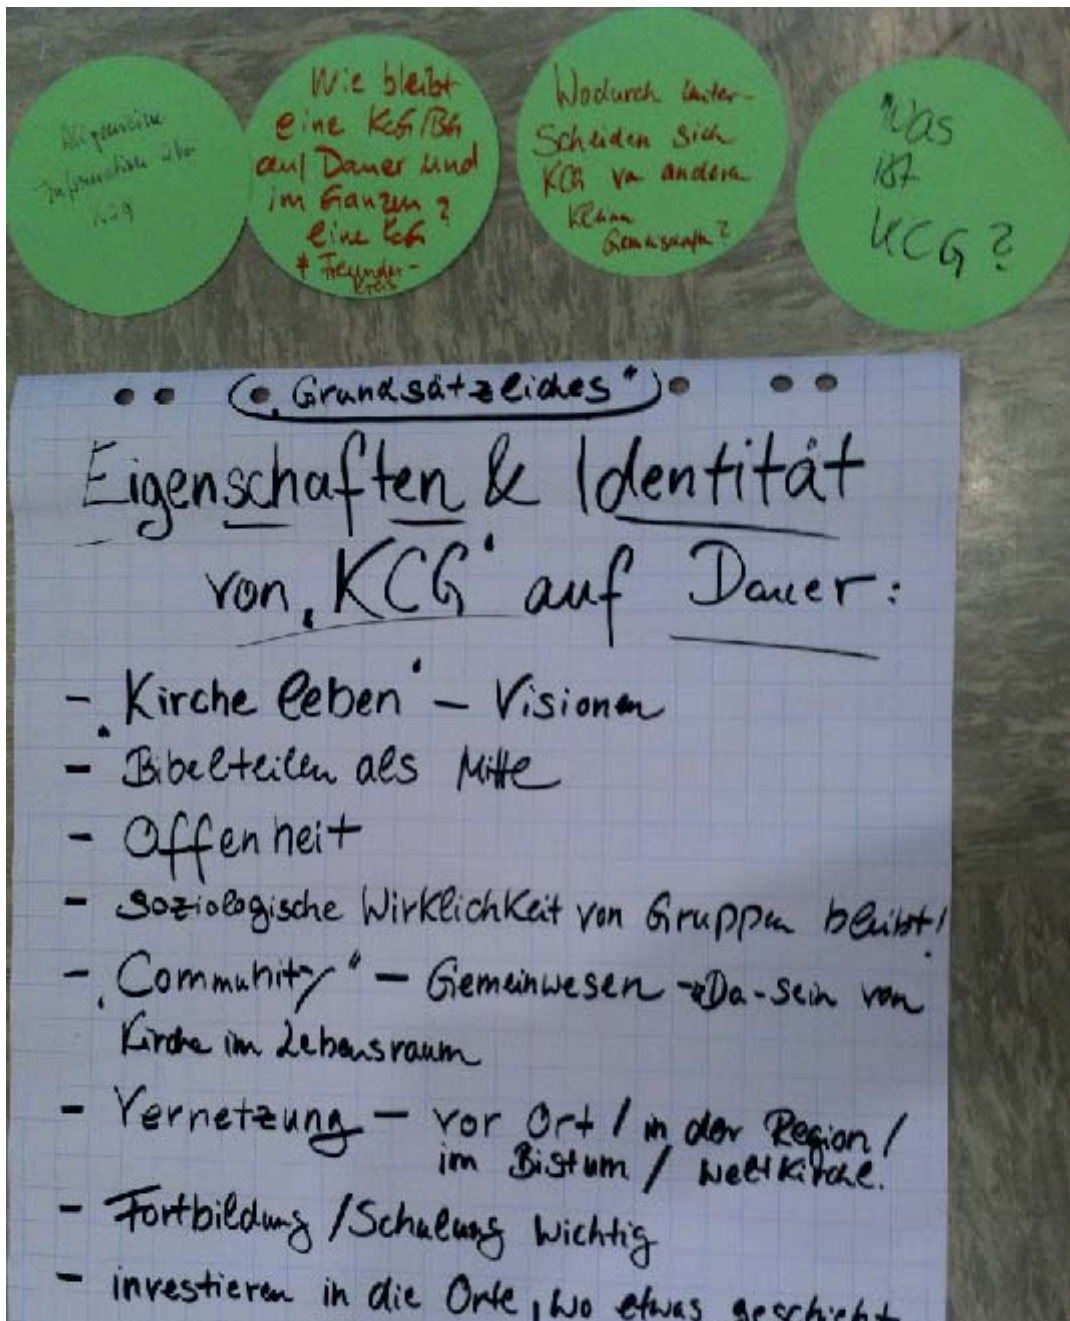 Allgemeine
Information über
KCG
Wie bleibt
eine KCG/BG
auf Dauer und
im Ganzen ?
eine KCG
≠ Freundes-
kreis
Wodurch unter-
scheiden sich
KCG von anderen
kleinen
Gemeinschaften?
Was
ist
KCG?
„Grundsätzliches"
Eigenschaften & Identität
von ‚KCG' auf Dauer:
- ‚Kirche leben' – Visionen
- Bibelteilen als Mitte
- Offenheit
- soziologische Wirklichkeit von Gruppen bleibt!
- „Community" – Gemeinwesen → Da-sein von
Kirche im Lebensraum
- Vernetzung – vor Ort / in der Region /
im Bistum / Weltkirche.
- Fortbildung /Schulung wichtig
- investieren in die Orte, wo etwas geschieht